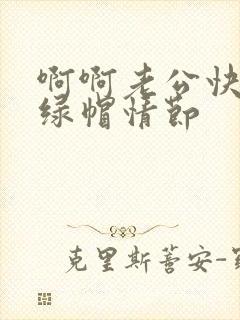 啊啊老公快
绿帽情节
克里斯蒂安-